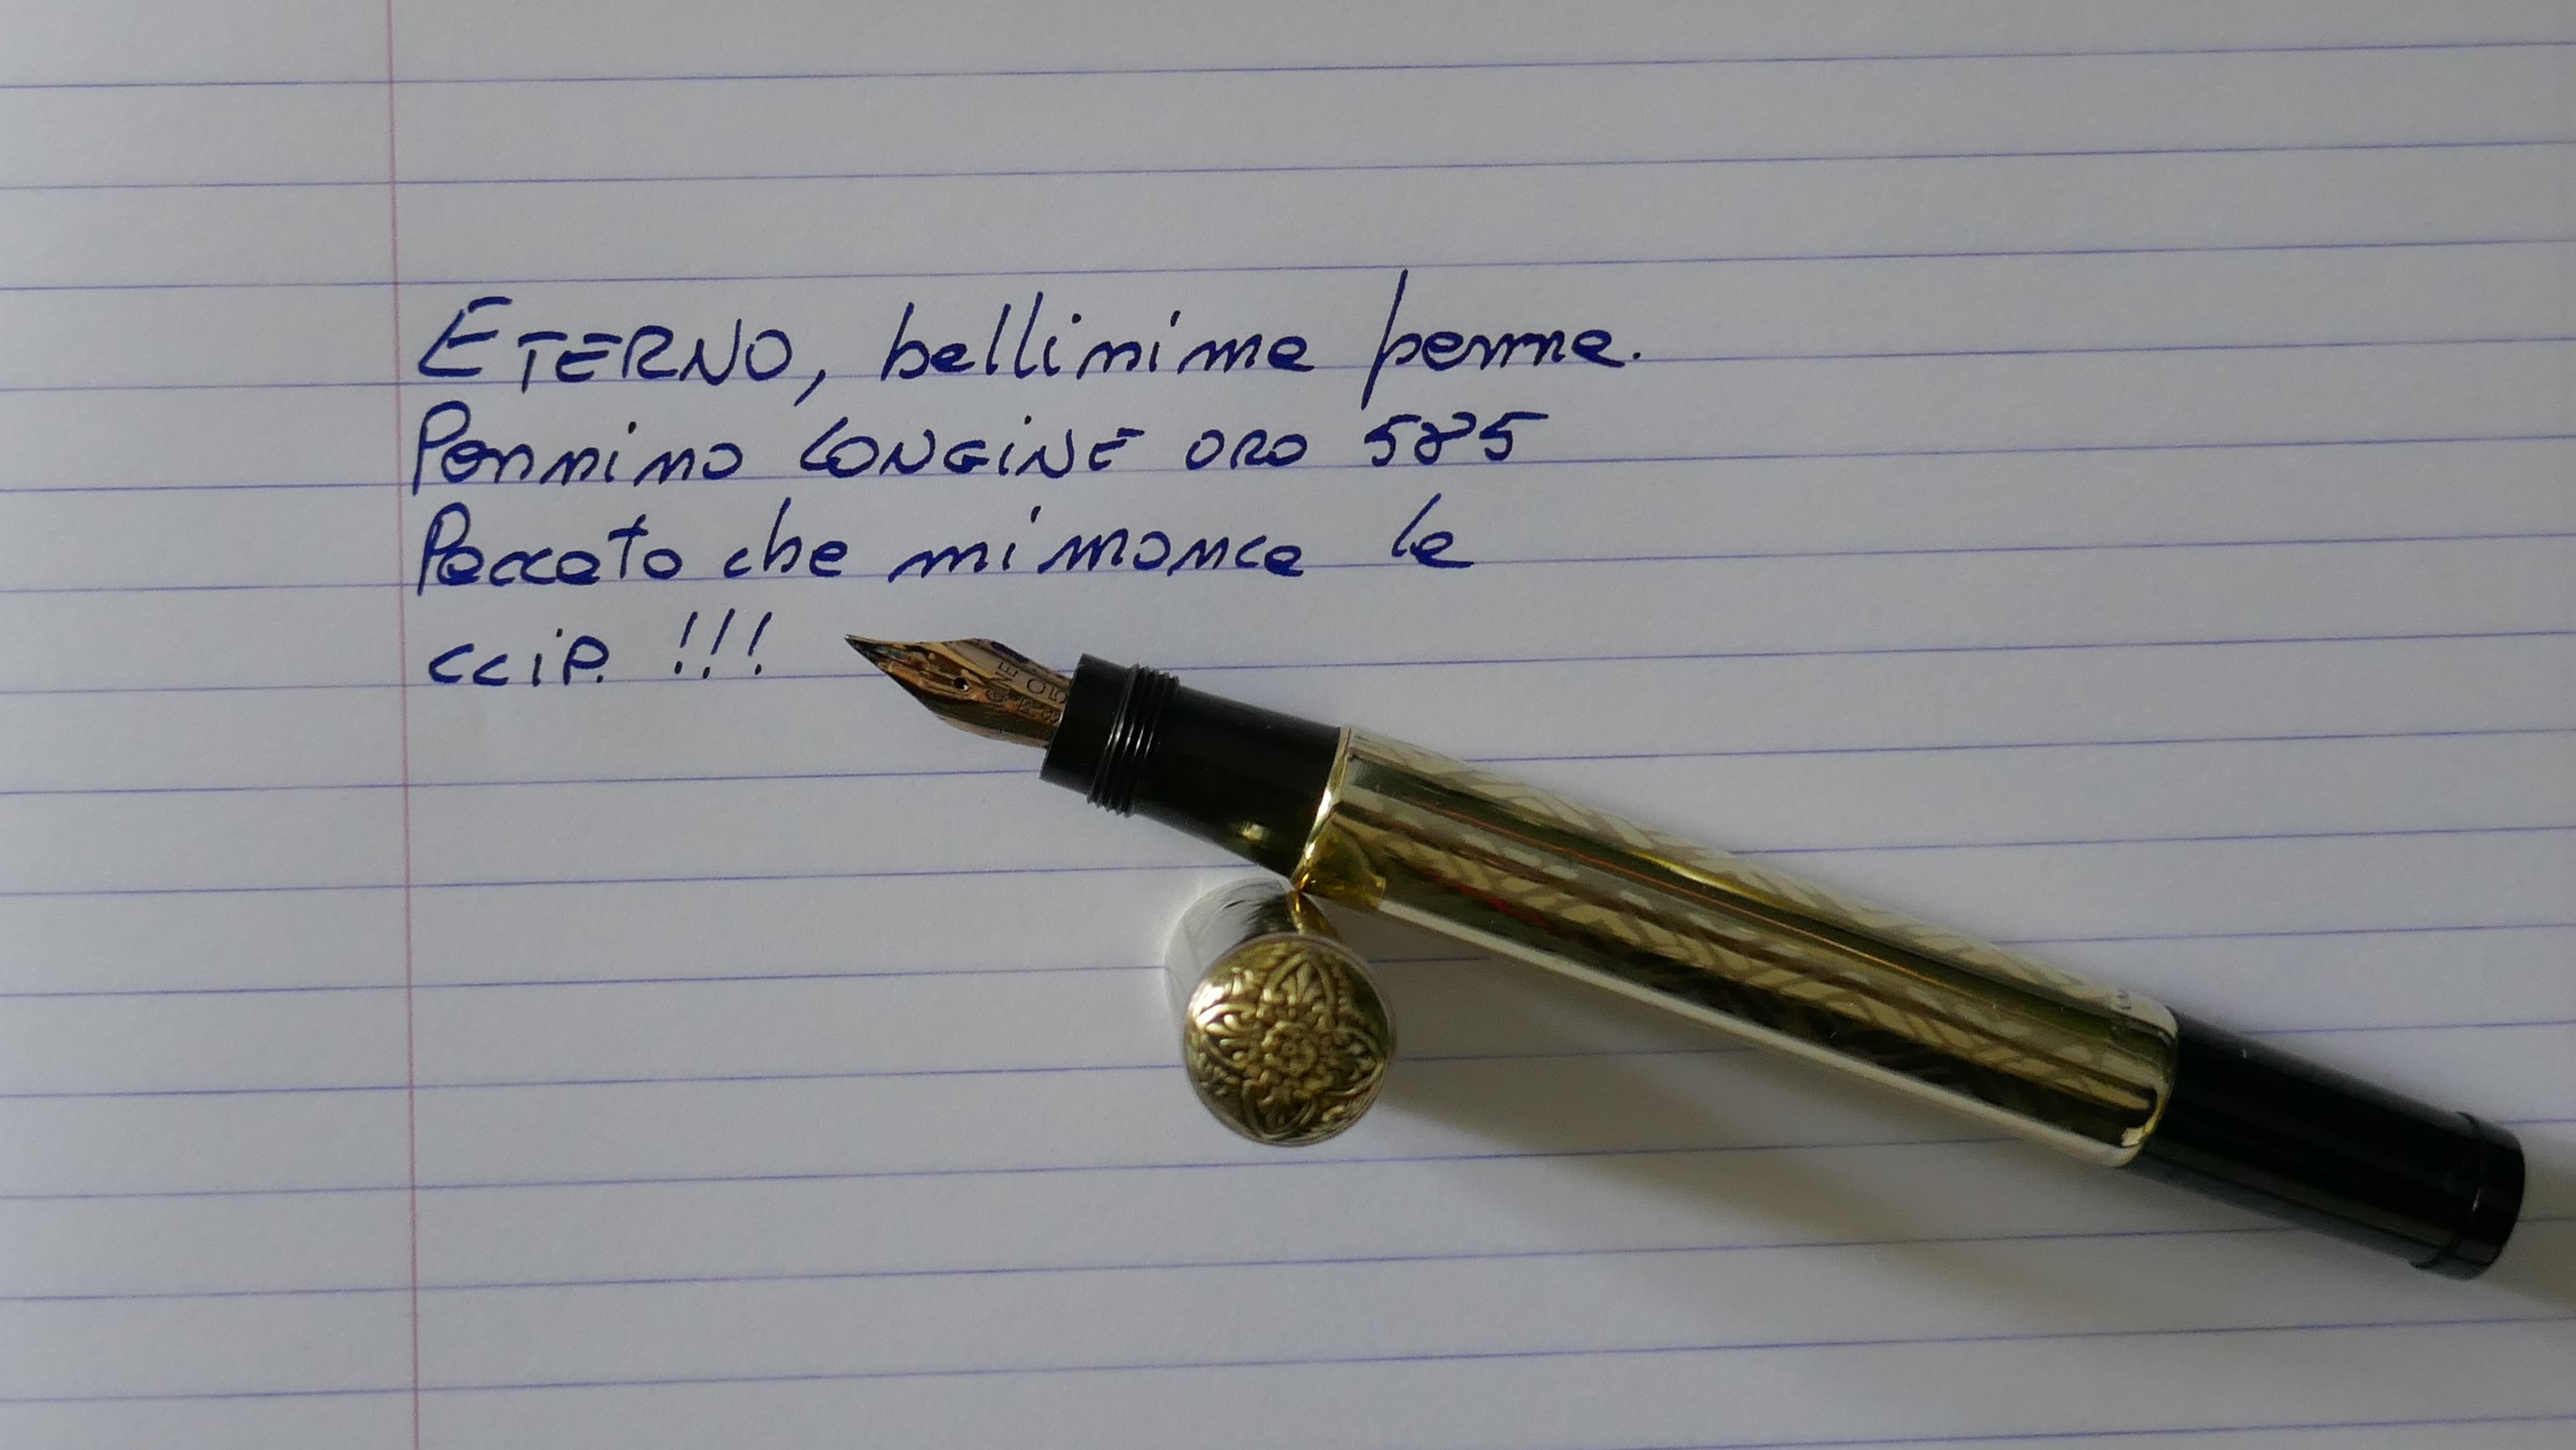 ETERNO, bellissima penna.
Pennino CONGINE ORO 585
Peccato che mi manca la
CLIP. !!!